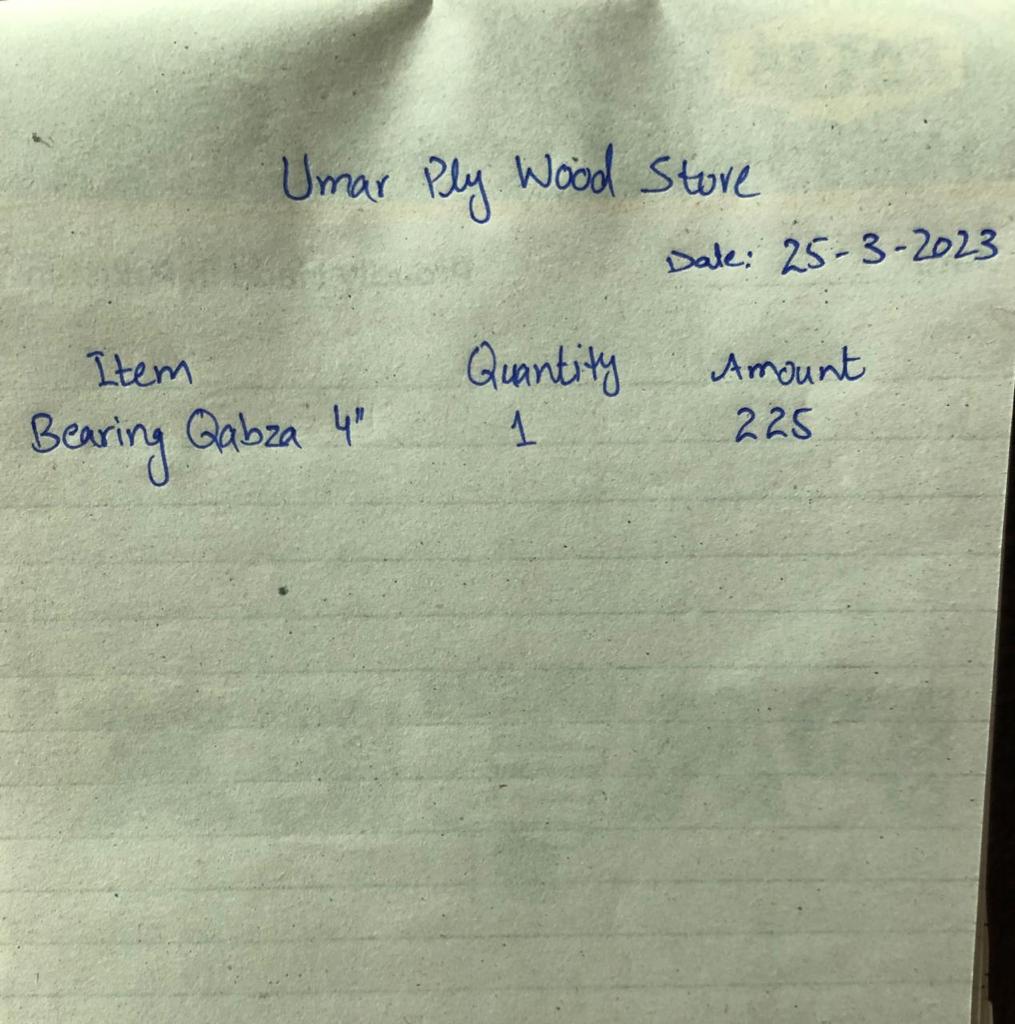 Umar Ply Wood Store
Date: 25-3-2023
Item Quantity Amount
Bearing Qabza 4" 1 225